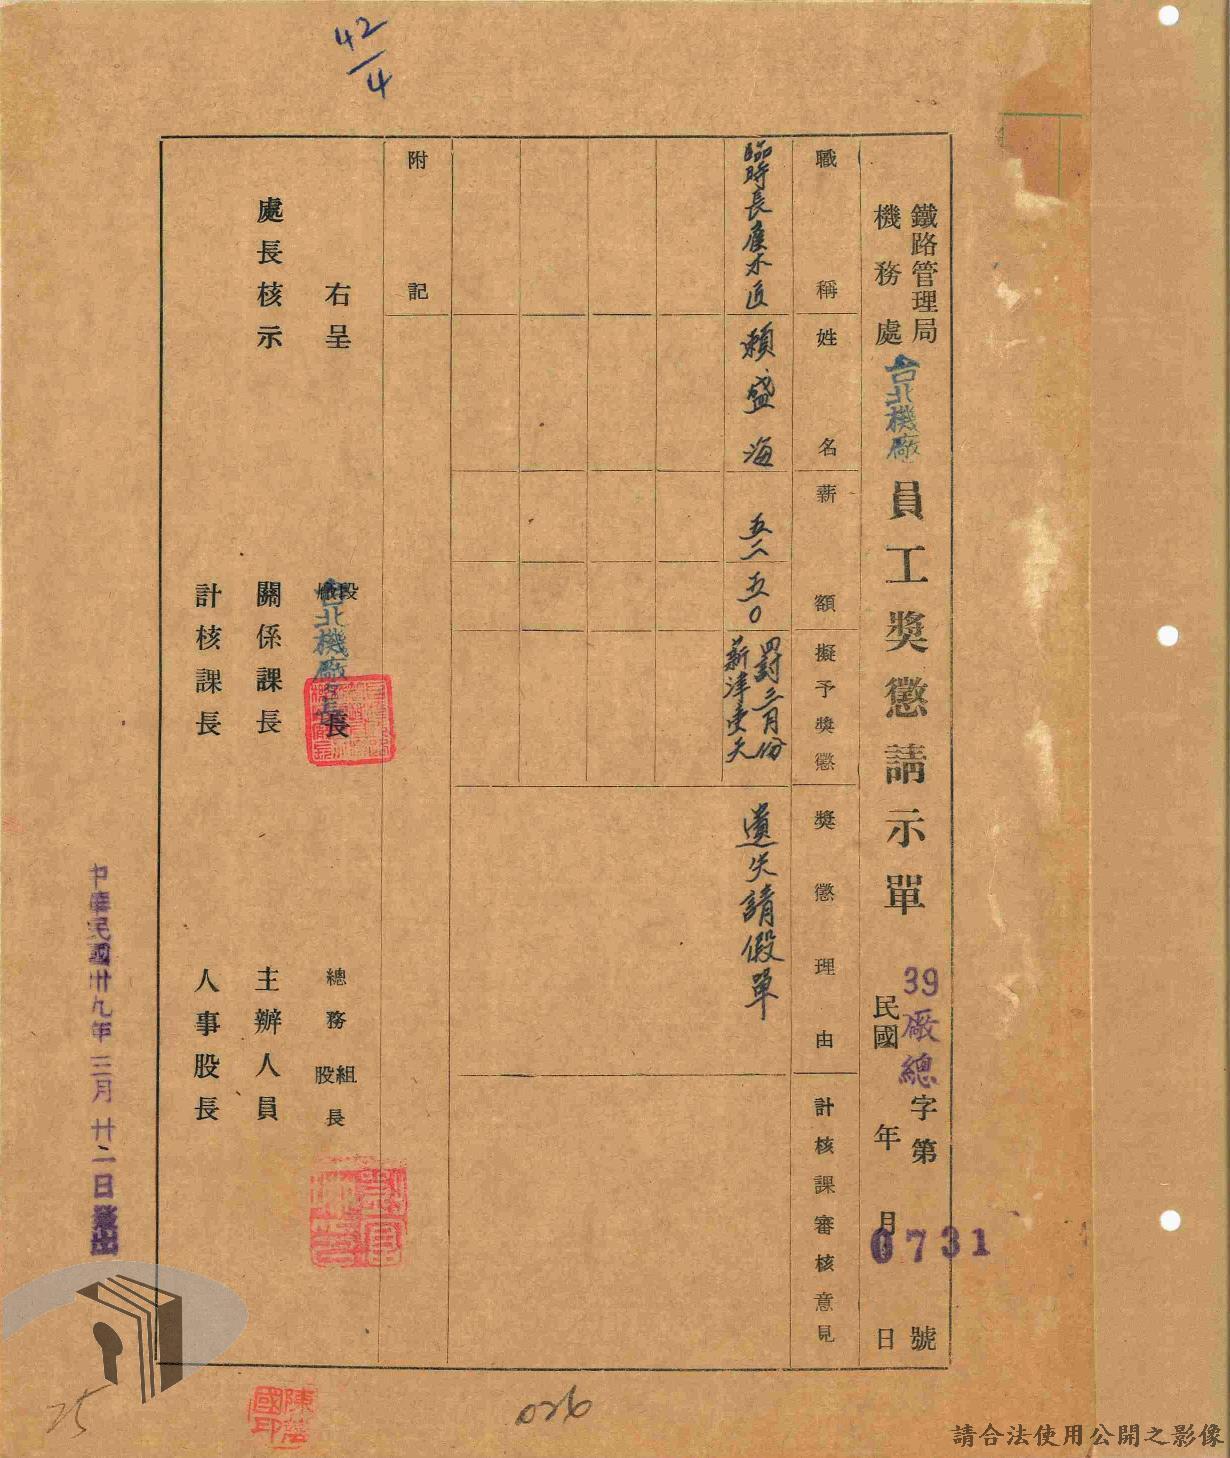 42/4
鐵路管理局
機務處
台北機廠
員工獎懲請示單
39廠總字第0731號
民國 年 月 日
職稱
姓名
薪額
擬予獎懲
獎懲理由
計核課審核意見
臨時長雇木匠
賴盛海
五二五〇
罰三月份
薪津壹天
遺失請假單
附記
右呈
段
廠
長
台北機廠
總務
組
股
長
處長核示
關係課長
主辦人員
計核課長
人事股長
中華民國卅九年三月廿二日發出
陳
國印
026
25
請合法使用公開之影像